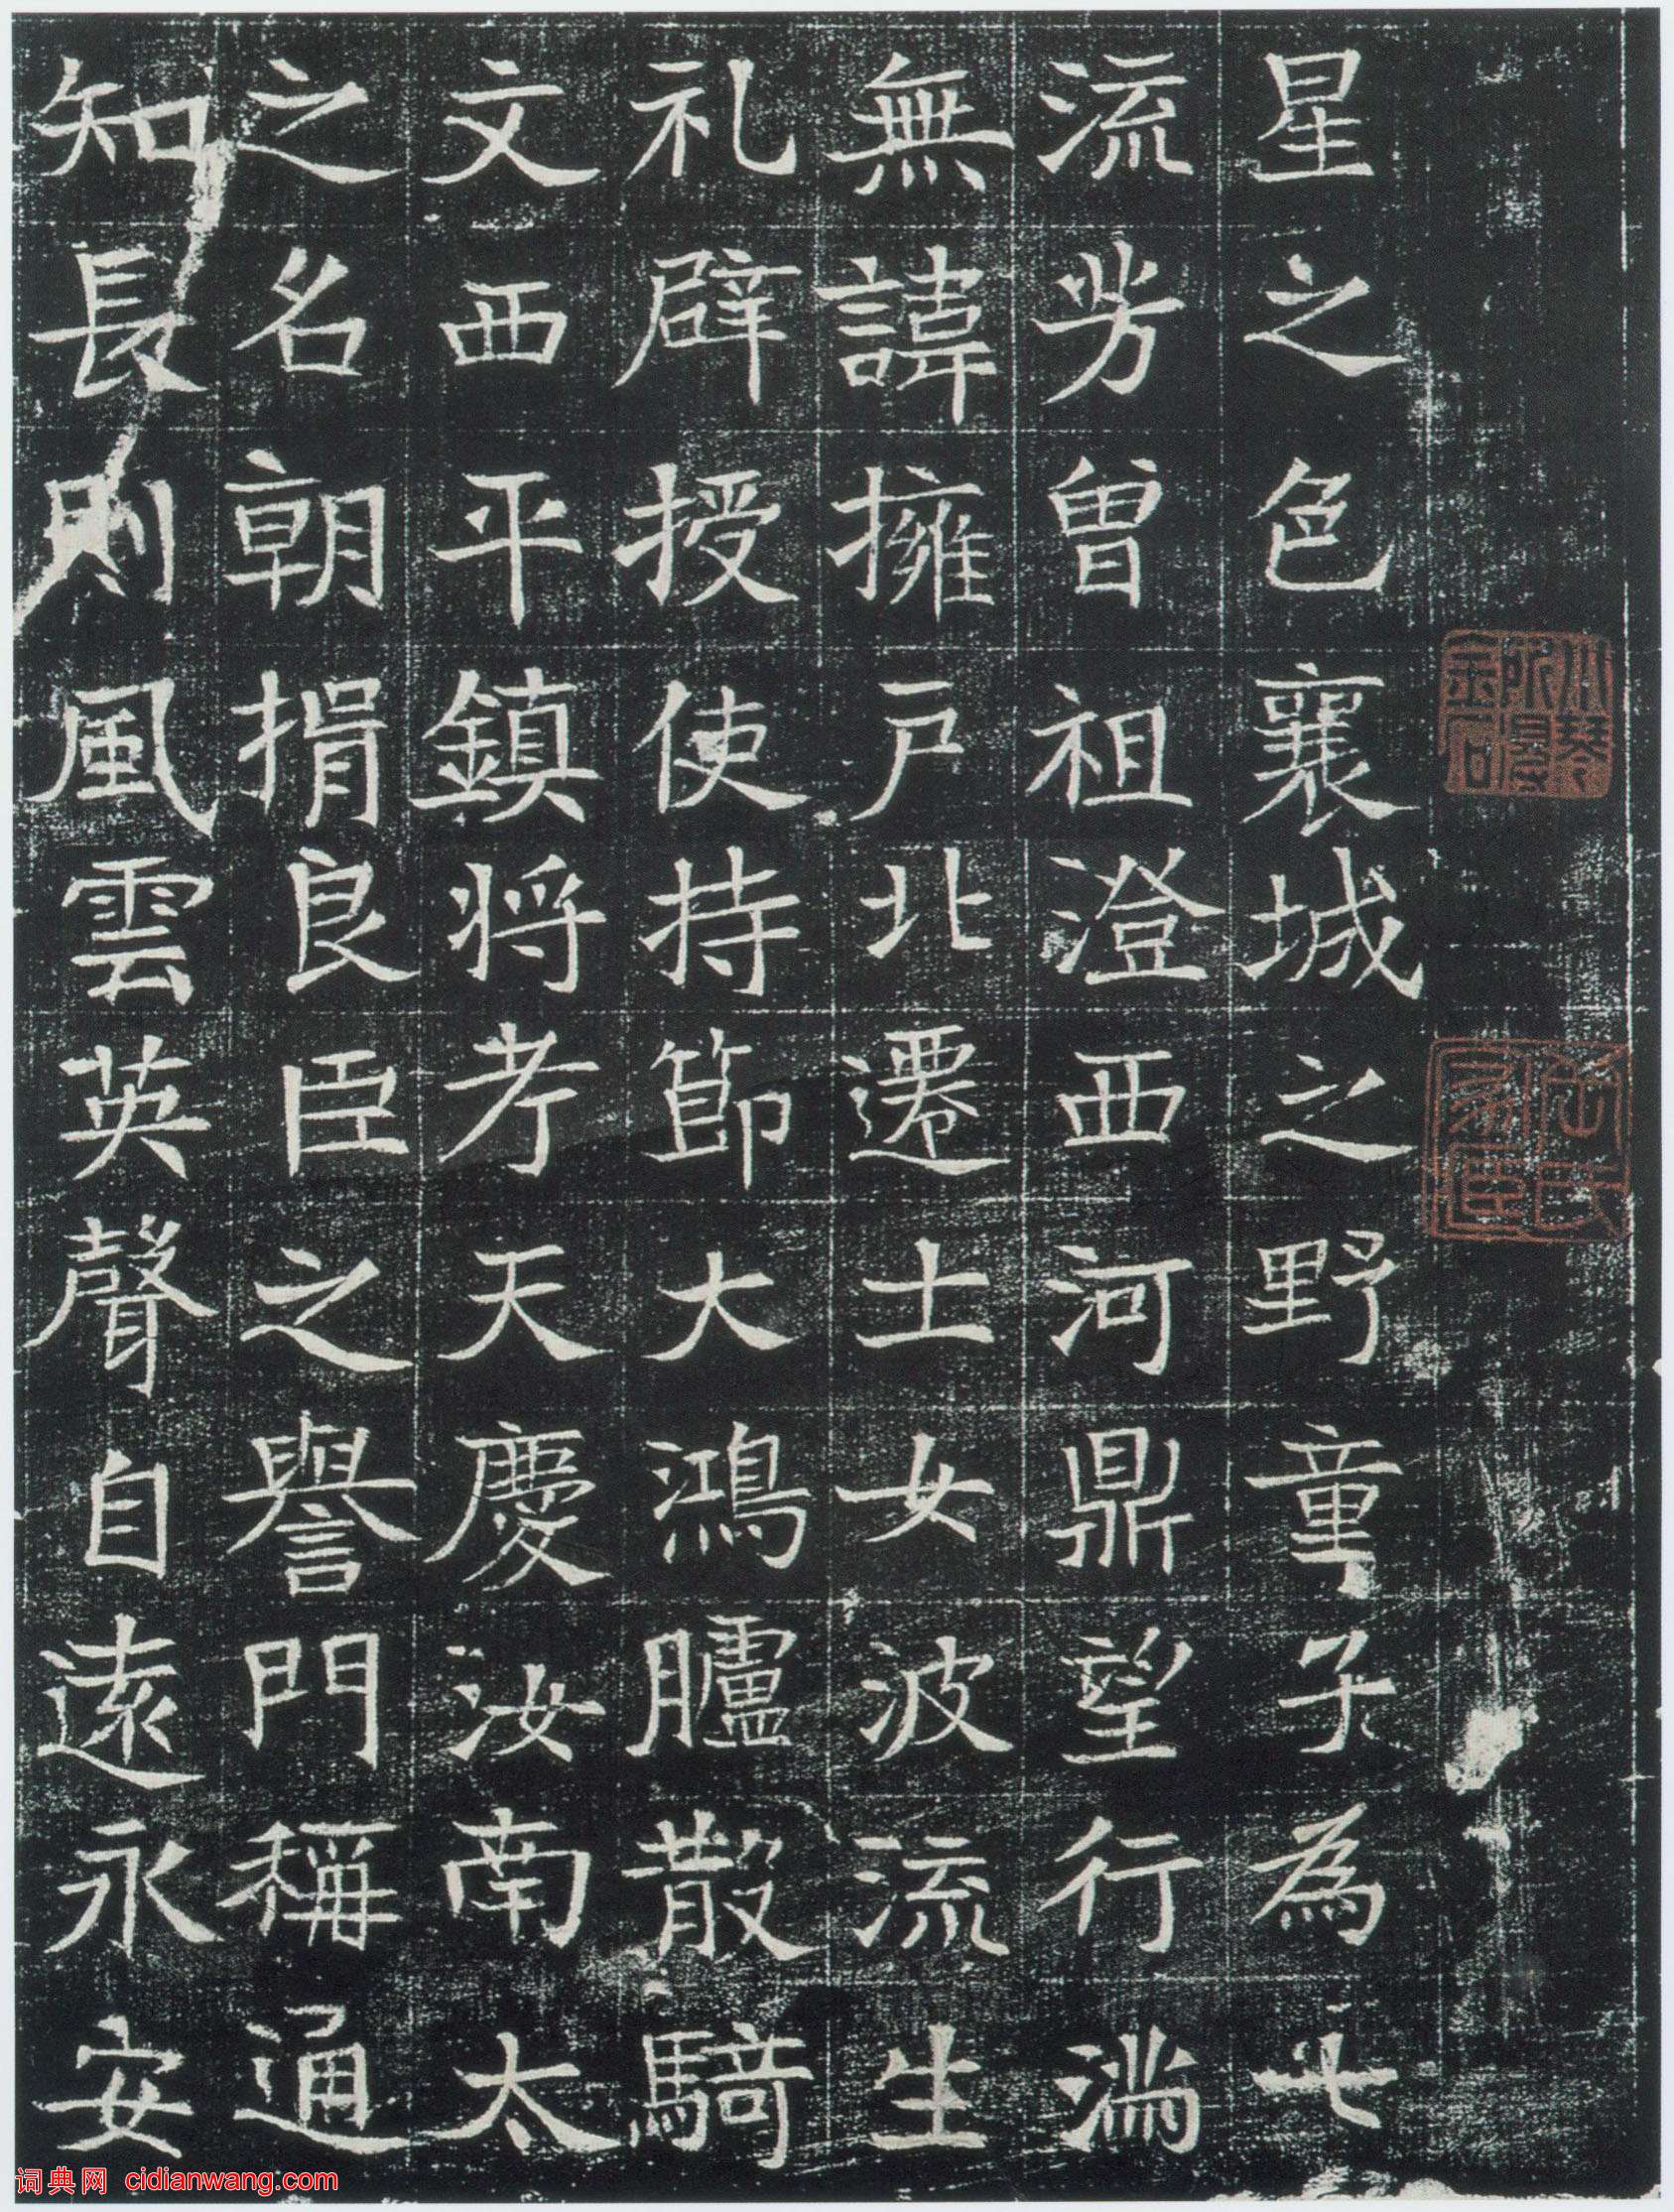 星之色襄城之野童子為七
流芳曾祖澄西河鼎望行滿
無諱擁戶北遷士女波流生
礼辟授使持節大鴻臚散騎
文西平鎮將考天慶汝南太
之名朝捐良臣之譽門稱通
知長則風雲英聲自遠永安
小琴所得金石
词典网 cidianwang.com